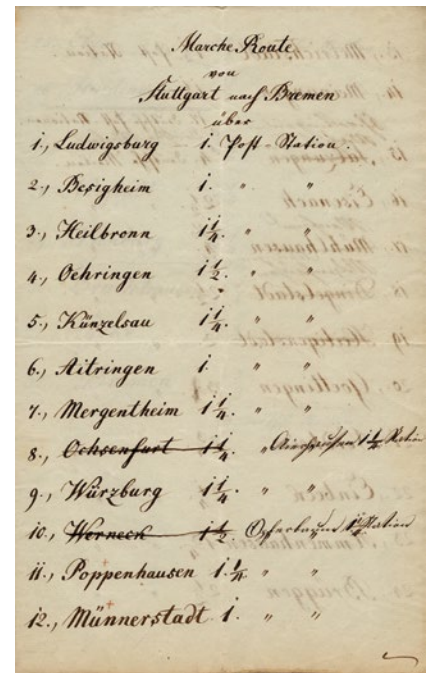 Marche Route
von
Stuttgart nach Bremen
über
1., Ludwigsburg 1. Post-Station.
2., Besigheim 1. " "
3., Heilbronn 1 1/4. " "
4., Oehringen 1 1/2. " "
5., Künzelsau 1 1/4. " "
6., Aitringen 1. " "
7., Mergentheim 1 1/4. " "
8., Ochsenfurt 1 1/4. " 1 1/4 Station
9., Würzburg 1 1/4. " "
10., Werneck 1 1/2. Station
11., Poppenhausen 1. 1/4 " "
12., Münnerstadt 1. " "